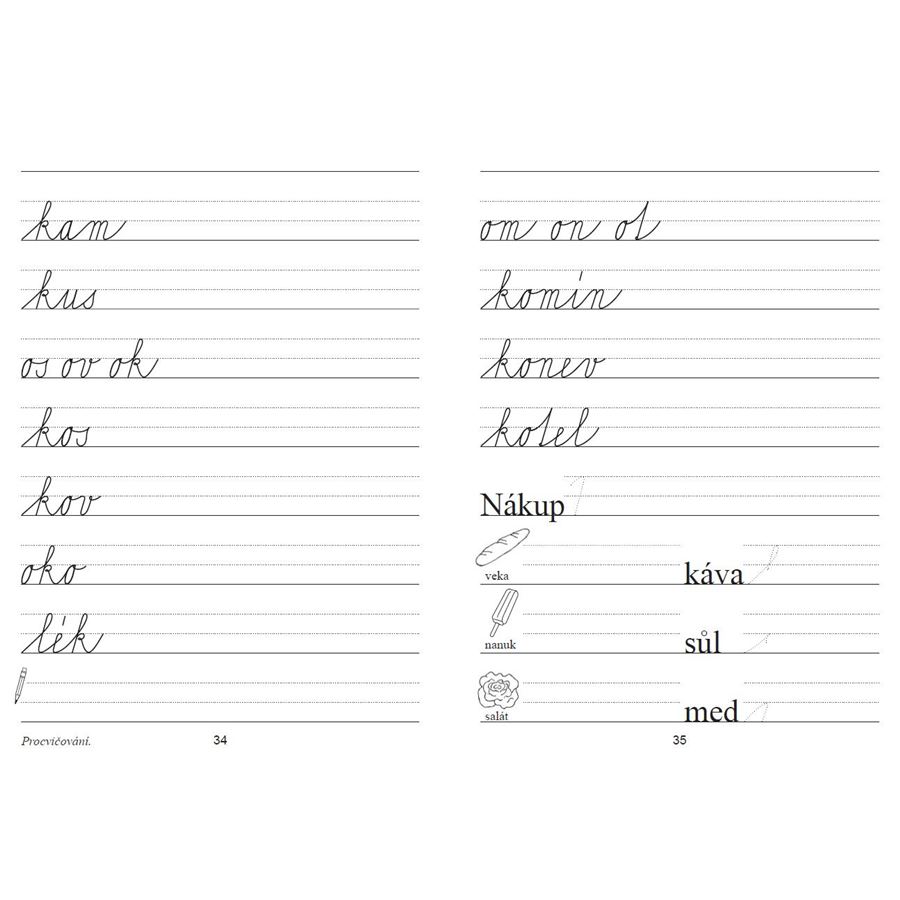 kam
kus
os ov ok
kos
kov
oko
lék
Procvičování.
34
om on ot
komín
konev
kotel
Nákup
veka káva
nanuk sůl
salát med
35